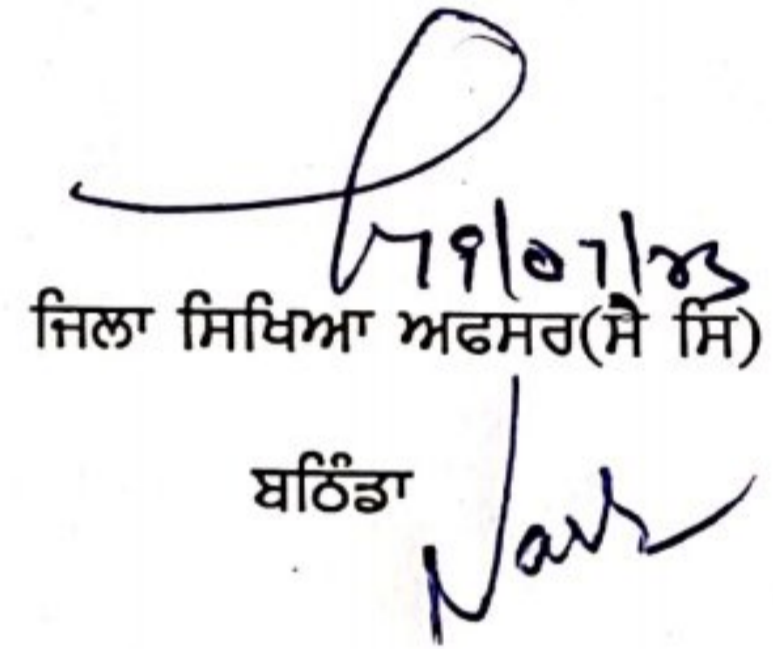 19/07/23
ਜਿਲਾ ਸਿਖਿਆ ਅਫਸਰ(ਸੈ ਸਿ)
ਬਠਿੰਡਾ